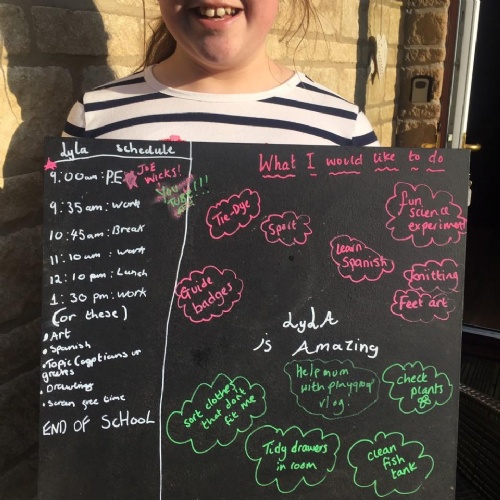 Lyla schedule
9:00am: P.E JOE WICKS!
YOU TUBE!!!
9:35am: Work
10:45am: Break
11:10am: work
12:10pm: Lunch
1:30pm: work
(or these)
• Art
• Spanish
• Topic (egyptians or greeks
• Drawing
• Screen free time
END OF SCHOOL
What I would like to do
Tie-Dye
Sport
fun
science
experiment
Learn
Spanish
Knitting
Felt art
Guide
badges
LYLA
is Amazing
Help mum
with playgroup
vlog.
check
plants
sort clothes
that don't
fit me
Tidy drawers
in room
clean
fish
tank